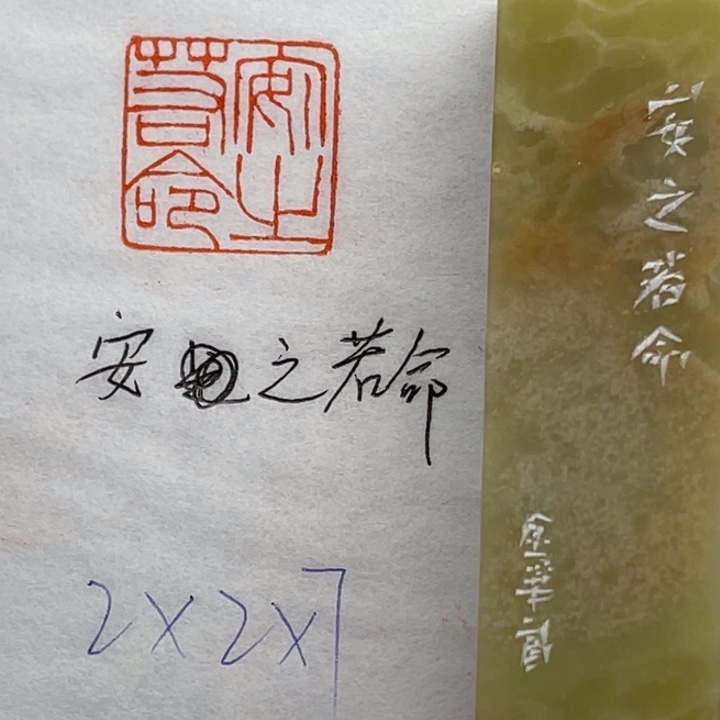 安之若命
安之若命
2×2×7
安之若命